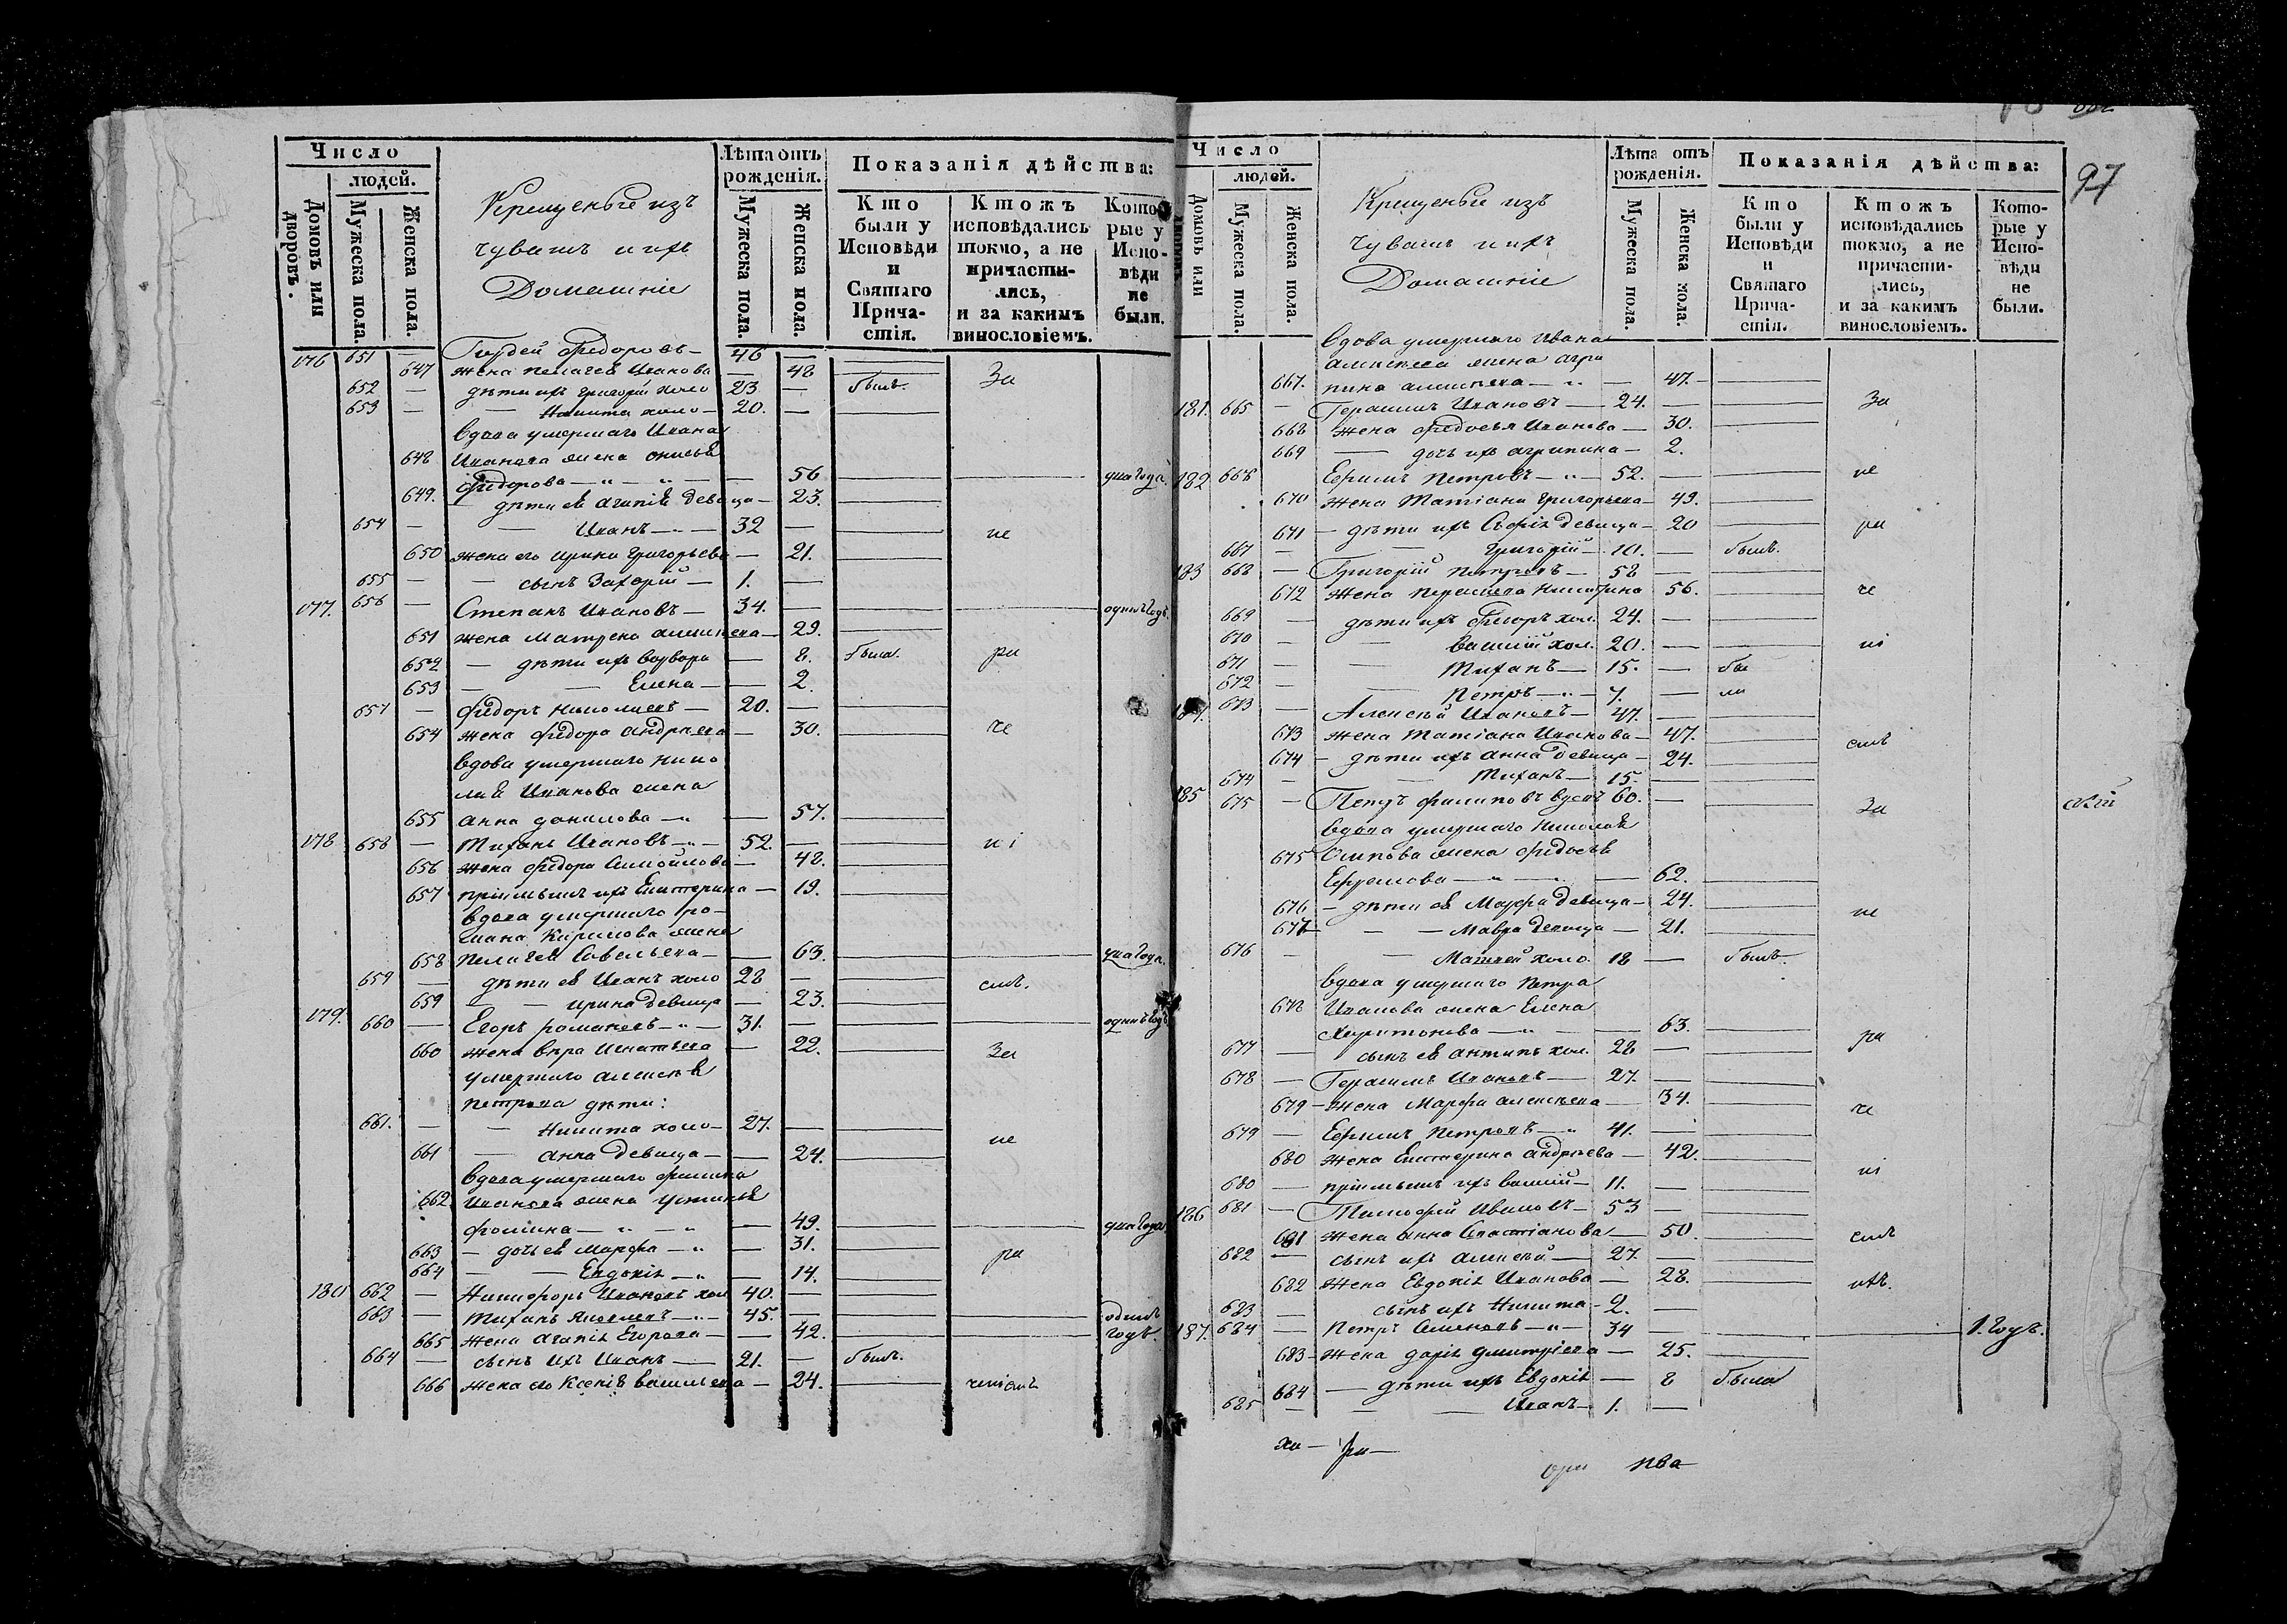 Число
людей.
Домовъ или дворовъ.
Мужеска пола.
Женска пола.
Крещеные изъ
чувашъ и ихъ
Домашніе
Лѣта отъ рожденія.
Мужеска пола.
Женска пола.
Показанія дѣйства:
Кто были у Исповѣди и Святаго Причастія.
Ктожъ исповѣдались токмо, а не причастились, и за какимъ винословіемъ.
Которые у Исповѣди не были.
176 651 — Гордей Федоровъ — 46 —
647 жена Пелагея Иванова — 48
652 — дѣти ихъ Григорій холо 23 — былъ. За
653 — — Никита холо — 20. —
вдова умершаго Ивана
648 Иванова жена
Федорова — „ — „ — 56 два года.
649. — дѣти ея Агапія девица — 23.
654 — — Иванъ — „ — 32 — не
650 жена его Ирина Григорьева — 21.
655 — — сынъ Захарій — 1. —
177. 656 — Степанъ Ивановъ — 34. — одинъ годъ.
651 жена Матрена Алексѣева — 29.
652 — дѣти ихъ Варвара — 8. была. ра
653 — — Елена — 2.
657 — Федоръ Николаевъ — 20. —
654 жена Федора Андреева — 30. че
вдова умершаго Нико
лая Иванова жена
655 Анна Данилова — „ — 57.
178 658 — Михаилъ Ивановъ — „ — 52. — ні
656 жена Федора Самойлова — 48.
657 пріимышъ ихъ Екатерина — 19.
вдова умершаго Ро-
мана Кирилова жена
658 Пелагея Савельева — 63. два года.
659 — дѣти ея Иванъ холо 28 — емъ.
659 — — Ирина девица — 23.
179. 660 — Егоръ Романовъ — „ — 31. — одинъ годъ
660 жена Вѣра Игнатьева — 22. За
умершаго Алексѣя
Петрова дѣти:
661. — — Никита холо — 27. — не
661 — Анна девица — 24.
вдова умершаго Филипа
662 Иванова жена Устинья
Фомина — „ — „ — 49. два года
663 — дочь ея Марфа — „ — 31. ра
664 — — Евдокія — „ — 14.
180 662 — Никифоръ Ивановъ хол 40. —
663 — Михаилъ Яковлевъ — „ — 45. — одинъ
665 жена Агапія Егорова — 42. годъ.
664 — сынъ ихъ Иванъ — 21. — былъ.
666 жена его Ксенія Васильева — 24. ченіемъ
97
Число
людей.
Домовъ или дворовъ
Мужеска пола.
Женска пола.
Крещеные изъ
чувашъ и ихъ
Домашніе
Лѣта отъ рожденія.
Мужеска пола.
Женска пола.
Показанія дѣйства:
Кто были у Исповѣди и Святаго Причастія.
Ктожъ исповѣдались токмо, а не причастились, и за какимъ винословіемъ.
Которые у Исповѣди не были.
вдова умершаго Ивана
Алексѣева жена Агри
667. пина Алексѣева — „ — 47.
181. 665 — Герасимъ Ивановъ — 24. — За
668 жена Федосья Иванова — 30.
669 — дочь ихъ Агрипина — 2.
182 666 Ефимъ Петровъ — „ — 52. — не
670 жена Татіана Григорьева — 49.
671 — дѣти ихъ Софія девица — 20 ра
667 — — Григорій — 10. — былъ.
183 668 — Григорій Петровъ — 58 —
672 жена Параскева Никитина 56. че
669 — дѣти ихъ Егоръ хол. 24. —
670 — — Василій хол. 20. — ні
671 — — Михаилъ — 15. — бы
672 — — Петръ — „ — 7. — ли
184. 673 — Алексѣй Ивановъ — 47. —
673 жена Татіана Иванова — 47. емъ
674 — дѣти ихъ Анна девица — 24.
674 — — Михаилъ — 15. —
185 675 — Петръ Филиповъ вдовъ 60. — За
вдова умершаго Николая
675 Осипова жена Федосья
Ефремова — „ — 62.
676 — дѣти ея Марфа девица — 24. не
677 — — Мавра девица — 21.
676 — — Матвей холо. 18 — былъ.
вдова умершаго Петра
678 Иванова жена Елена
Харитонова — „ — 63. ра
677 — сынъ ея Антипъ хол. 28 —
678 — Герасимъ Ивановъ — 27. —
679 — жена Марфа Алексѣева — 34. че
679 — Ефимъ Петровъ — „ 41. —
680 жена Екатерина Андреева — 42. ні
680 — пріимышъ ихъ Василій — 11. —
186 681 — Тимофей Ивановъ — 53 —
681 жена Анна Севастіанова — 50. емъ
682 — сынъ ихъ Алексѣй — 27. —
682 жена Евдокія Иванова — 28. ихъ.
683 — сынъ ихъ Никита — 2. —
187. 684 — Петръ Семеновъ — „ — 34 — 1. годъ.
683 — жена Дарія Дмитріева — 25.
684 — дѣти ихъ Евдокія — 8 была
685 — — Иванъ — 1. —